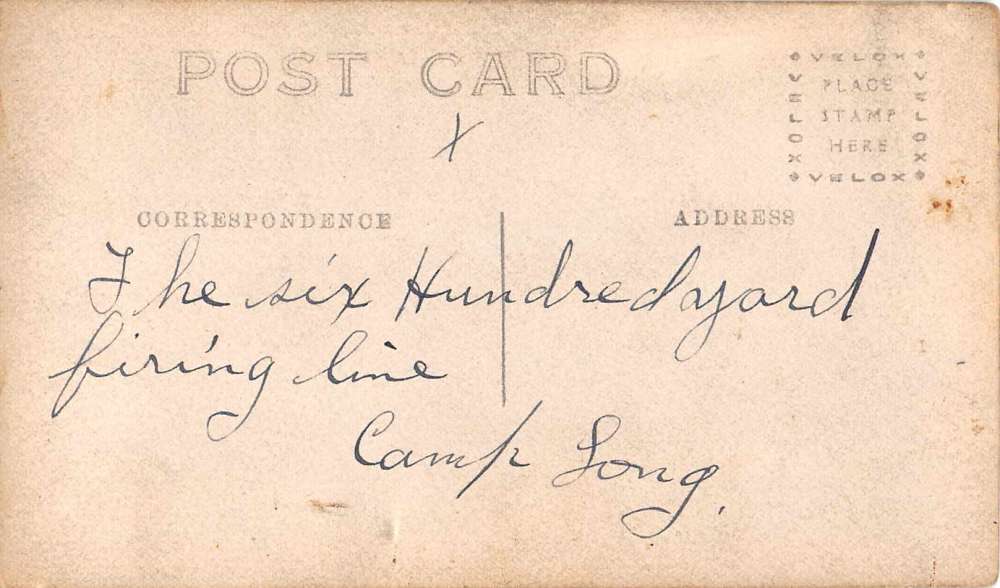 POST CARD
VELOX
VELOX
VELOX
VELOX
PLACE
STAMP
HERE
X
CORRESPONDENCE
ADDRESS
The six Hundred yard
firing line
Camp Long.